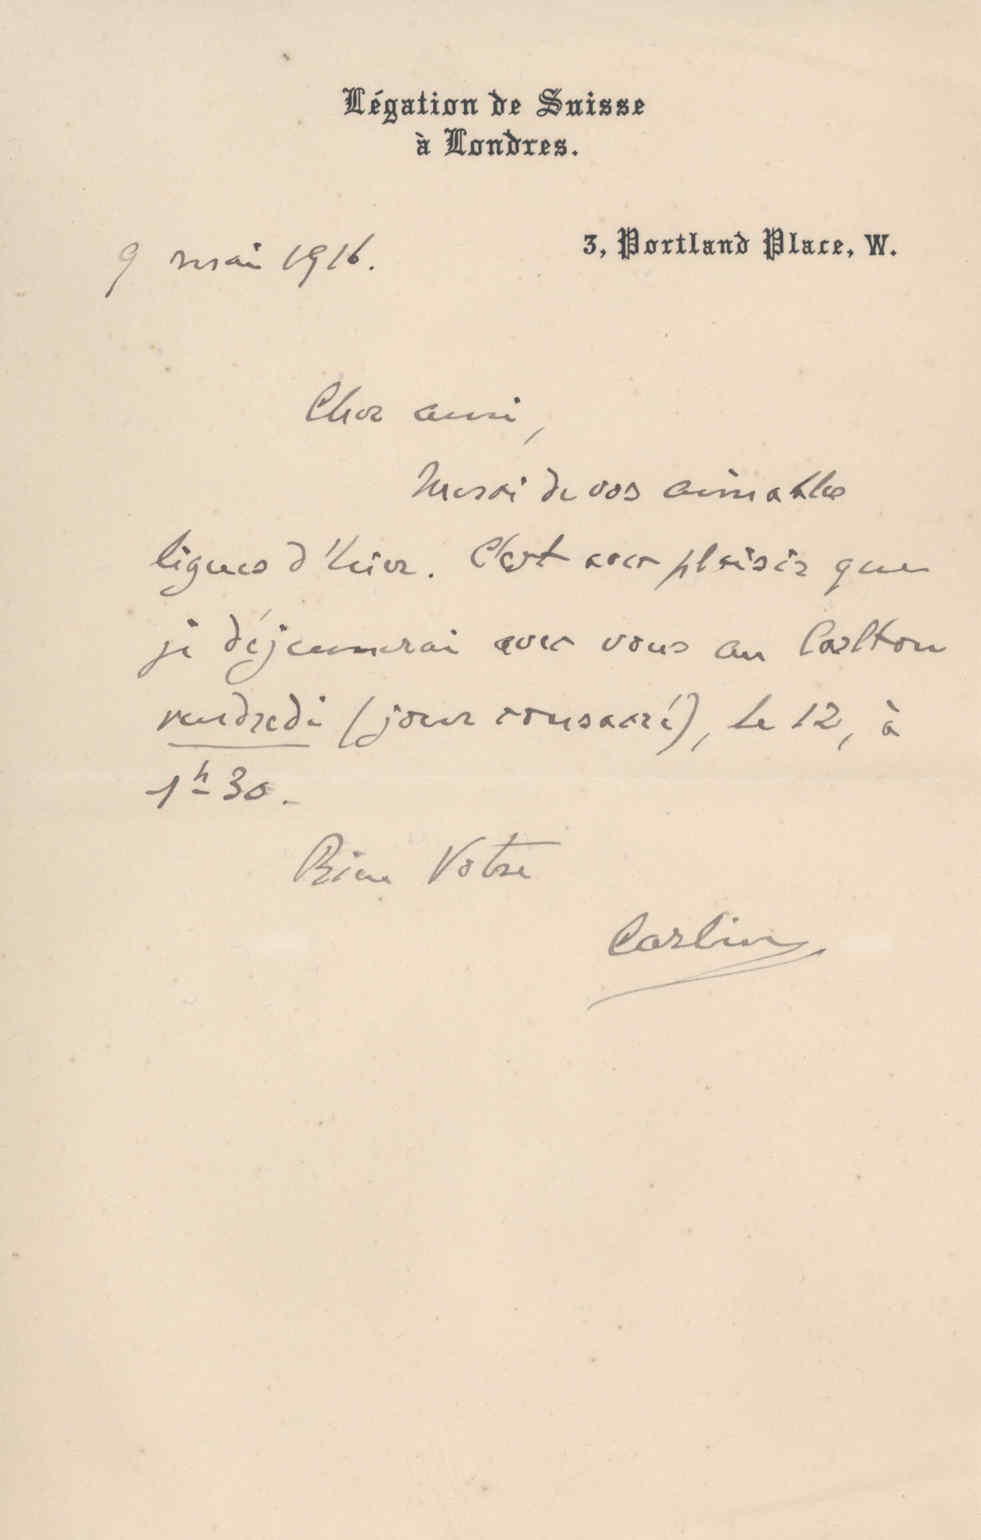 Légation de Suisse
à Londres.
3, Portland Place, W.
9 mai 1916.
Cher ami,
Merci de vos aimables
lignes d'hier. C'est avec plaisir que
je déjeunerai avec vous au Carlton
vendredi (jour consacré), le 12, à
1h 30.
Bien Votre
Carlin